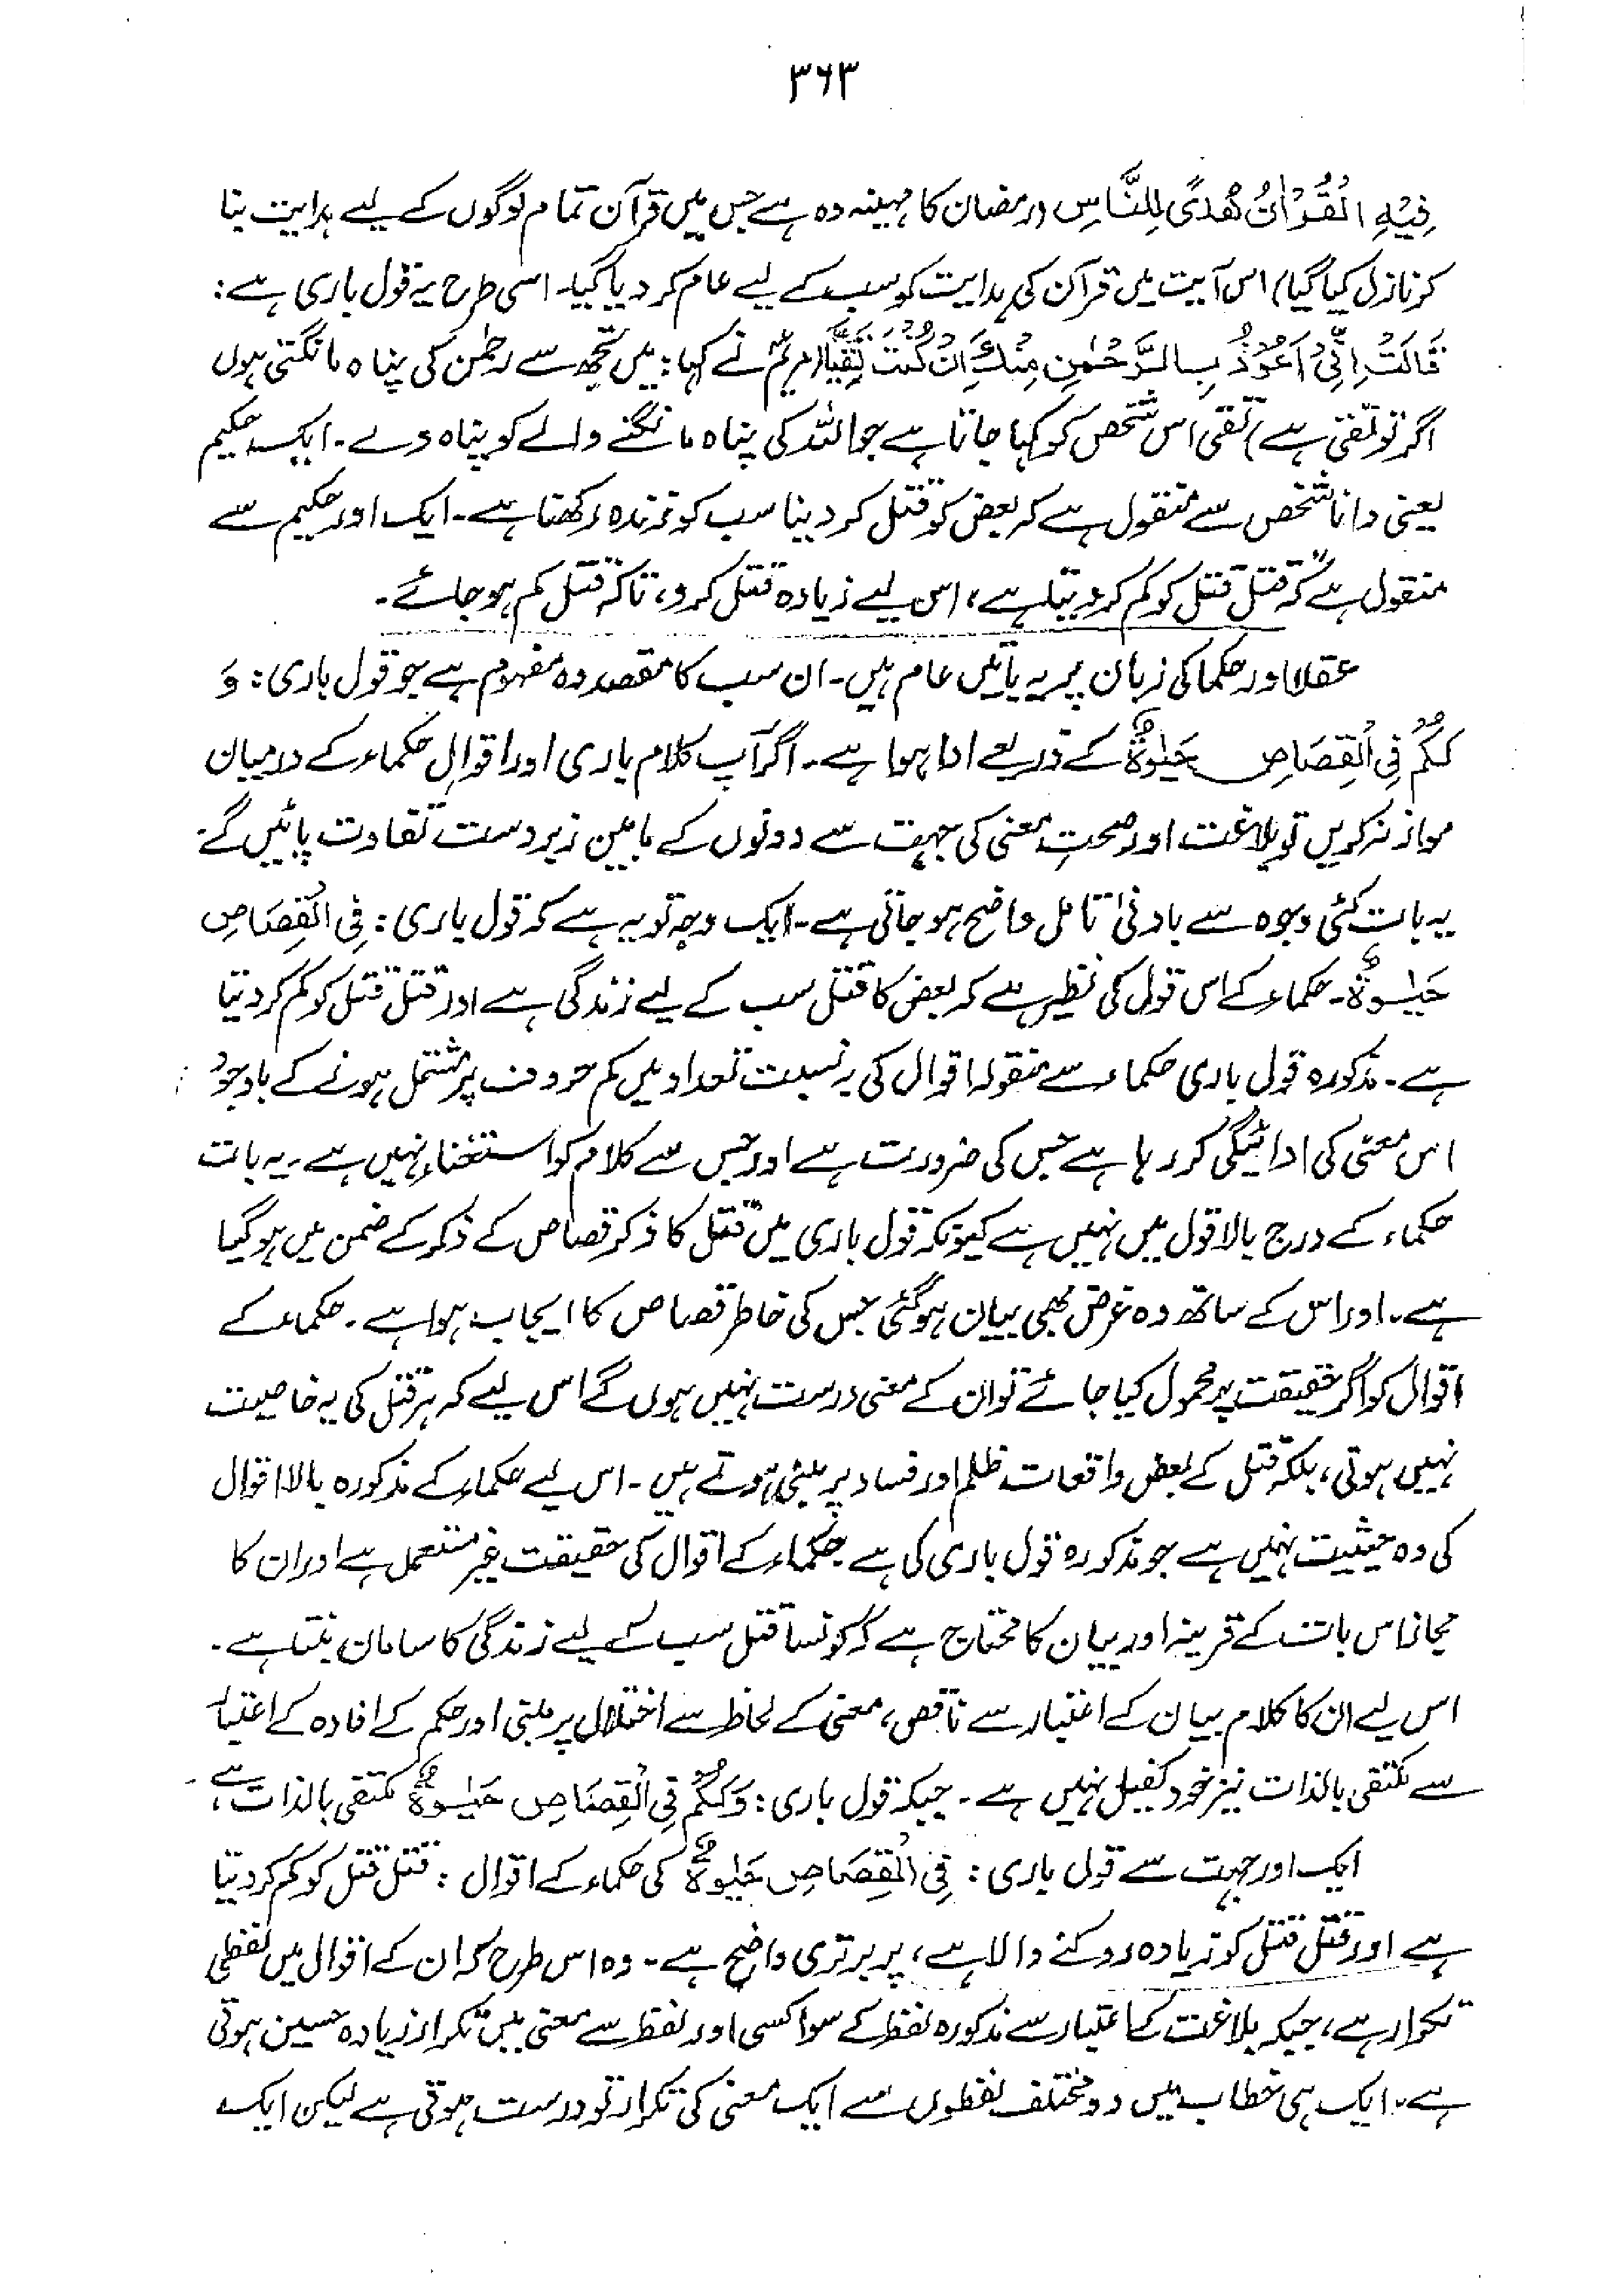 ۳۶۳
فِيْهِ الْقُرْاٰنُ هُدًى لِلنَّاسِ (رمضان کا مہینہ وہ ہے جس میں قرآن تمام لوگوں کے لیے ہدایت بنا
کر نازل کیا گیا) اس آیت میں قرآن کی ہدایت کو سب کے لیے عام کر دیا گیا۔ اسی طرح یہ قول باری ہے:
قَالَتْ اِنِّیْ اَعُوْذُ بِالرَّحْمٰنِ مِنْكَ اِنْ كُنْتَ تَقِيًّا (مریمؑ نے کہا: میں تجھ سے رحمٰن کی پناہ مانگتی ہوں
اگر تو تقی ہے) تقی اس شخص کو کہا جاتا ہے جو اللہ کی پناہ مانگنے والے کو پناہ دے۔ ایک حکیم
یعنی دانا شخص سے منقول ہے کہ بعض کو قتل کر دینا سب کو زندہ رکھنا ہے۔ ایک اور حکیم سے
منقول ہے "کہ قتل قتل کو کم کر دیتا ہے، اس لیے زیادہ قتل کرو، تاکہ قتل کم ہو جائے۔
عقلا اور حکما کی زبان پر یہ باتیں عام ہیں۔ ان سب کا مقصد وہ مفہوم ہے جو قول باری: وَ
لَكُمْ فِی الْقِصَاصِ حَيٰوةٌ کے ذریعے ادا ہوا ہے۔ اگر آپ کلام باری اور اقوالِ حکماء کے درمیان
موازنہ کریں تو بلاغت اور صحتِ معنی کی جہت سے دونوں کے مابین زبردست تفاوت پائیں گے۔
یہ بات کئی وجوہ سے بادنیٰ تامل واضح ہو جاتی ہے۔ ایک وجہ تو یہ ہے کہ قول باری: فِی الْقِصَاصِ
حَيٰوةٌ۔ حکماء کے اس قول کی نظیر ہے کہ بعض کا قتل سب کے لیے زندگی ہے اور قتل قتل کو کم کر دیتا
ہے۔ مذکورہ قول باری حکماء سے منقولہ اقوال کی بہ نسبت تعداد میں کم حروف پر مشتمل ہونے کے باوجود
اس معنی کی ادائیگی کر رہا ہے جس کی ضرورت ہے اور جس سے کلام کو استغناء نہیں ہے۔ یہ بات
حکماء کے درج بالا قول میں نہیں ہے کیونکہ قول باری میں قتل کا ذکر قصاص کے ذکر کے ضمن میں ہو گیا
ہے۔ اور اس کے ساتھ وہ غرض بھی بیان ہو گئی جس کی خاطر قصاص کا ایجاب ہوا ہے۔ حکماء کے
اقوال کو اگر حقیقت پر محمول کیا جائے تو ان کے معنی درست نہیں ہوں گے اس لیے کہ ہر قتل کی یہ خاصیت
نہیں ہوتی، بلکہ قتل کے بعض واقعات ظلم اور فساد پر مبنی ہوتے ہیں۔ اس لیے حکماء کے مذکورہ بالا اقوال
کی وہ حیثیت نہیں ہے جو مذکورہ قول باری کی ہے۔ حکماء کے اقوال کی حقیقت غیر مستعمل ہے اور ان کا
مجاز اس بات کے قرینہ اور بیان کا محتاج ہے کہ کونسا قتل سب کے لیے زندگی کا سامان بنتا ہے۔
اس لیے ان کا کلام بیان کے اعتبار سے ناقص، معنی کے لحاظ سے اختلال پر مبنی اور حکم کے افادہ کے اعتبار
سے مکتفی بالذات نیز خود کفیل نہیں ہے۔ جبکہ قول باری: وَلَكُمْ فِی الْقِصَاصِ حَيٰوةٌ مکتفی بالذات ہے۔
ایک اور جہت سے قول باری: فِی الْقِصَاصِ حَيٰوةٌ کی حکماء کے اقوال: قتل قتل کو کم کر دیتا
ہے اور قتل قتل کو زیادہ روکنے والا ہے، پر برتری واضح ہے۔ وہ اس طرح کہ ان کے اقوال میں لفظی
تکرار ہے، جبکہ بلاغت کے اعتبار سے مذکورہ لفظ کے سوا کسی اور لفظ سے معنی میں تکرار زیادہ حسین ہوتی
ہے۔ ایک ہی خطاب میں دو مختلف لفظوں سے ایک معنی کی تکرار تو درست ہوتی ہے لیکن ایک